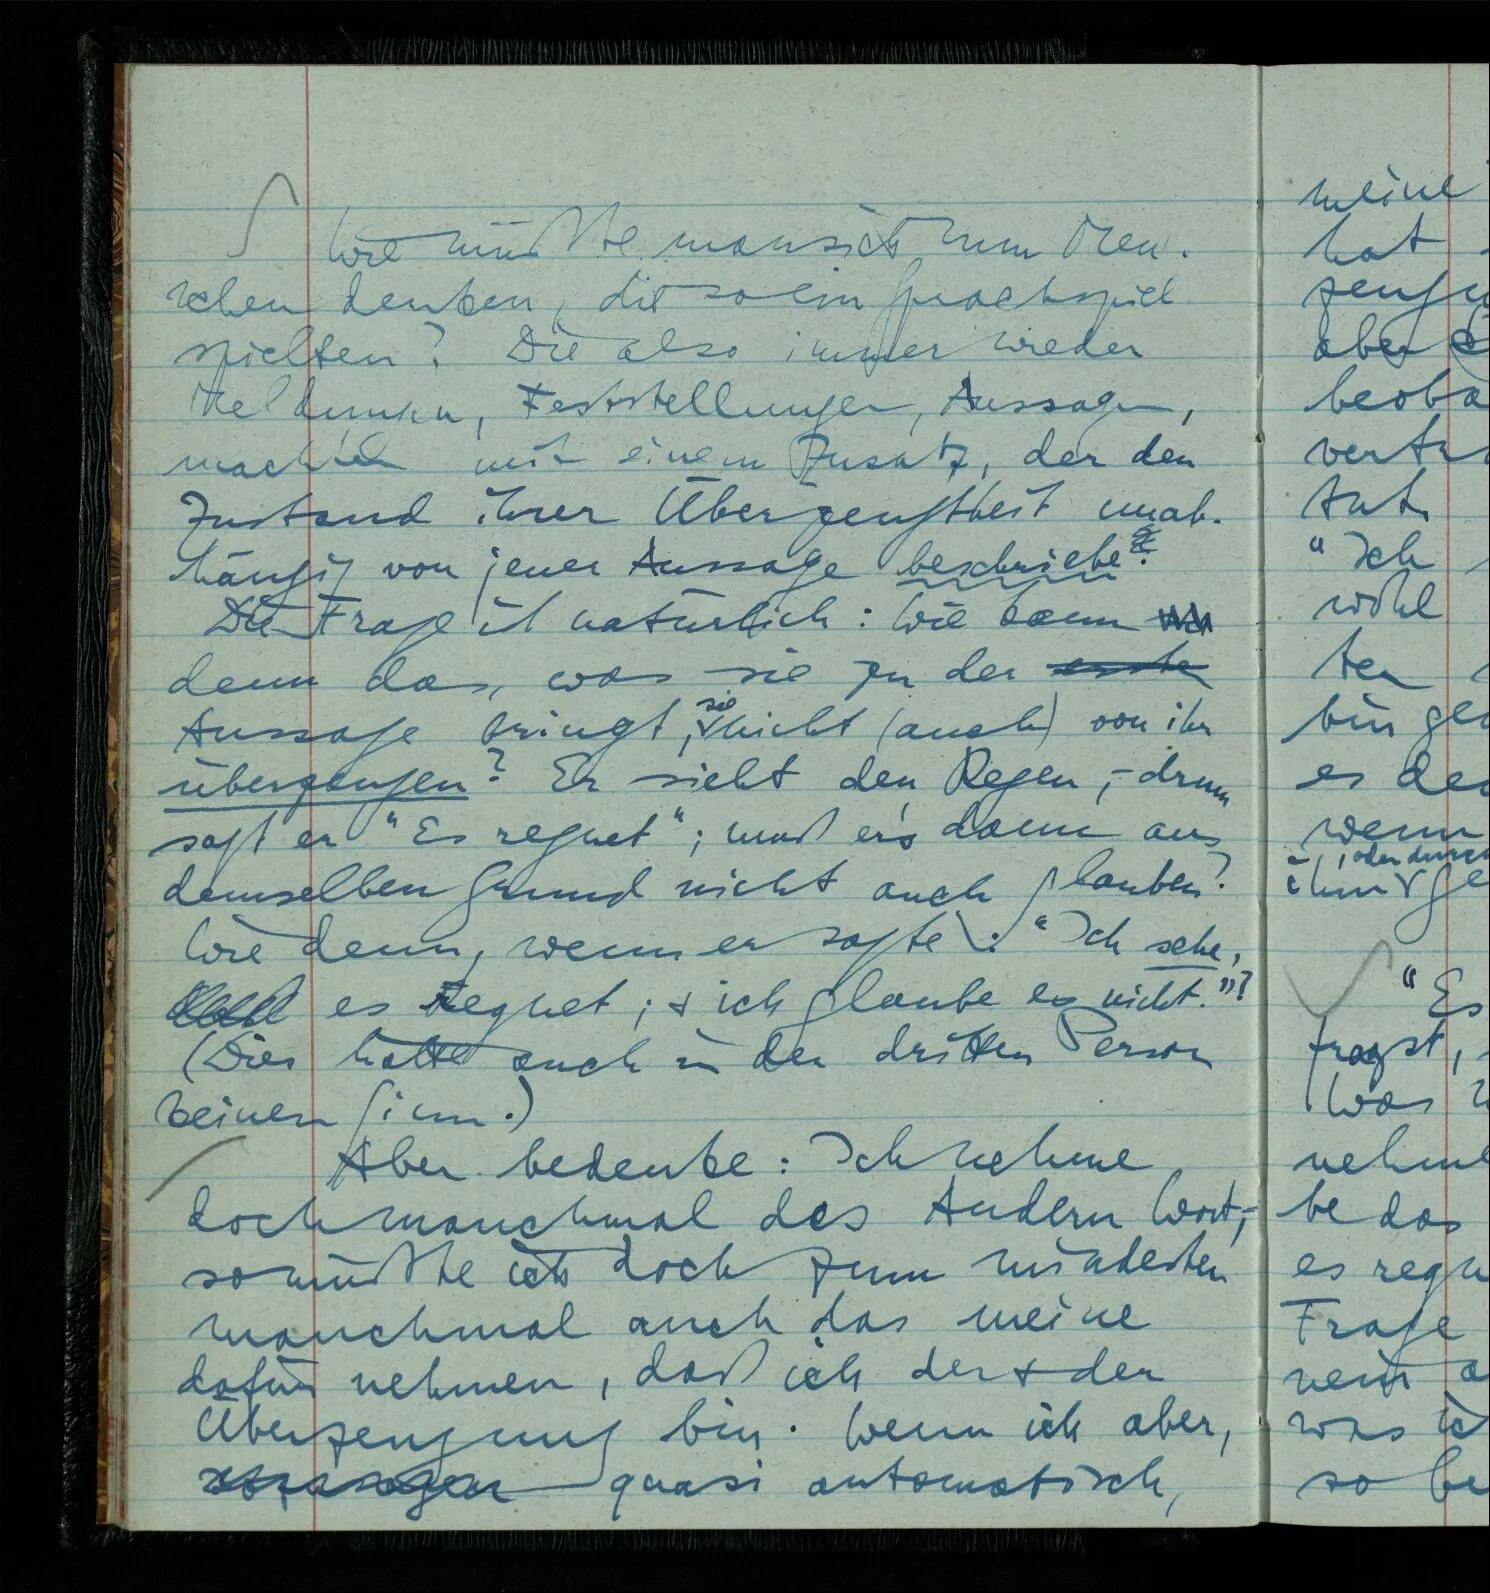 Wie müßte man sich nun Men-
schen denken, die so ein Sprachspiel
spielten? Die also immer wieder
Meldungen, Feststellungen, Aussagen,
machten mit einem Zusatz, der den
Zustand ihrer Überzeugtheit unab-
hängig von jener Aussage beschriebe?
Die Frage ist natürlich: Wie kann
denn das, was sie zu der
Aussage bringt, sie nicht (auch) von ihr
überzeugen? Er sieht den Regen, – drum
sagt er "Es regnet"; muß er's dann aus
demselben Grund nicht auch glauben?
Wie denn, wenn er sagte: "Ich sehe,
es regnet; & ich glaube es nicht."?
(Dies hätte auch in der dritten Person
keinen Sinn.)
Aber bedenke: Ich nehme
doch manchmal des Andern Wort, –
so müßte ich doch zum mindesten
manchmal auch das meine
dafür nehmen, daß ich der & der
Überzeugung bin. Wenn ich aber,
quasi automatisch,
meine
hat
aber
"Ich
wohl
ten
es
wenn
ihm
"Es
fragst,
Was
be das
Frage
so